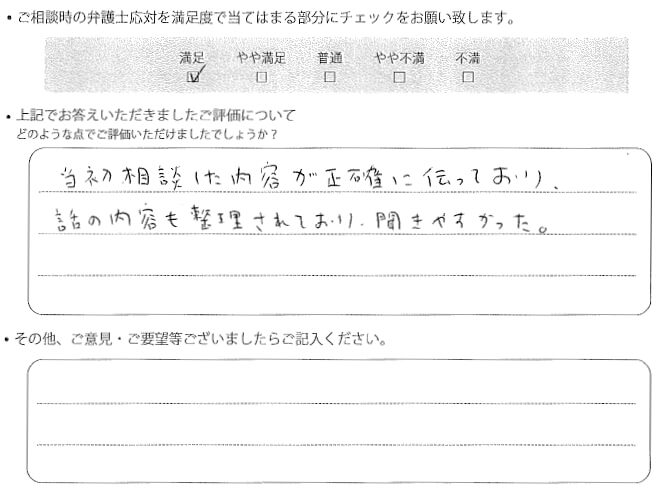 ・ご相談時の弁護士応対を満足度で当てはまる部分にチェックをお願い致します。
満足 やや満足 普通 やや不満 不満
☑ □ □ □ □
・上記でお答えいただきましたご評価について
どのような点でご評価いただけましたでしょうか？
当初相談した内容が正確に伝っており、
話の内容も整理されており、聞きやすかった。
・その他、ご意見・ご要望等ございましたらご記入ください。